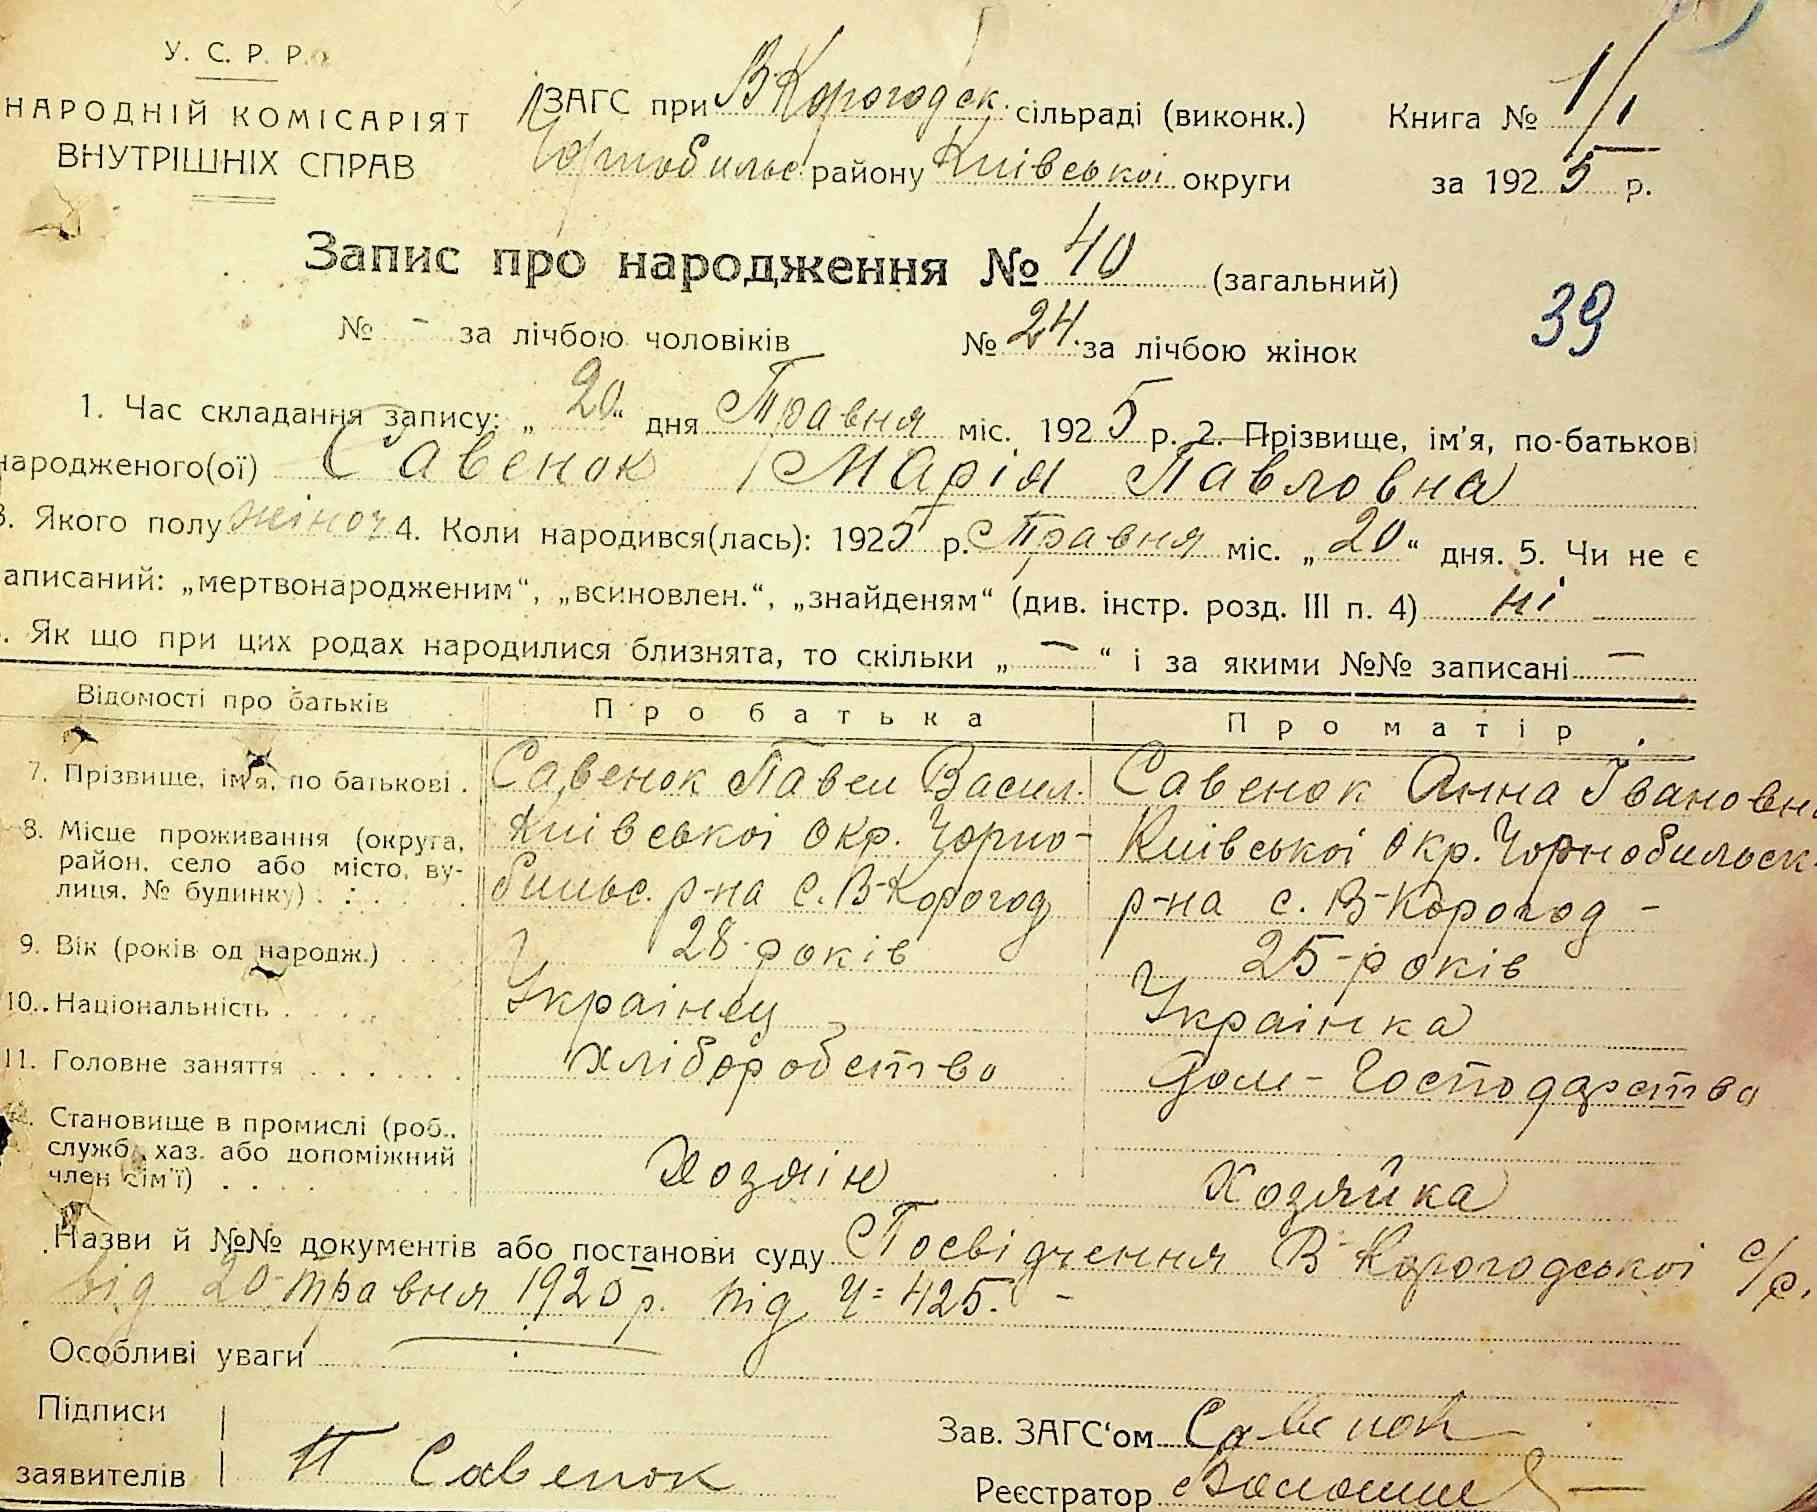 У. С. Р. Р.
НАРОДНІЙ КОМІСАРІЯТ
ВНУТРІШНІХ СПРАВ
ЗАГС при В-Корогодск. сільраді (виконк.)
Чорнобильс. району Київської округи
Книга № 1/1
за 1925 р.
Запис про народження № 40 (загальний)
№ - за лічбою чоловіків № 24. за лічбою жінок
39
1. Час складання запису: „20“ дня Травня міс. 1925 р. 2. Прізвище, ім'я, по-батькові
народженого(ої) Савенок Марія Павловна
3. Якого полу жіноч 4. Коли народився(лась): 1925 р. Травня міс. „20“ дня. 5. Чи не є
аписаний: „мертвонародженим“, „всиновлен.“, „знайденям“ (див. інстр. розд. III п. 4) ні
. Як що при цих родах народилися близнята, то скільки „—“ і за якими №№ записані —
Відомості про батьків Про батька Про матір.
7. Прізвище, ім'я, по батькові. Савенок Павел Васил. Савенок Анна Івановна
8. Місце проживання (округа, Київської окр. Чорно- Київської окр. Чорнобильск.
район, село або місто, ву-
лиця, № будинку) . : бильс. р-на с. В-Корогод р-на с. В-Корогод -
9. Вік (років од народж.) 28-років 25-років
10. Національність Українец Українка
11. Головне заняття хліборобство Дом-Господарство
12. Становище в промислі (роб.,
служб., хаз. або допоміжний
член сім'ї) Хозяін Хозяйка
Назви й №№ документів або постанови суду Посвідчення В-Корогодської с/р.
від 20-травня 1925 р. під Ч= 425. -
Особливі уваги
Підписи
заявителів П Савенок
Зав. ЗАГС'ом Савенок
Реєстратор